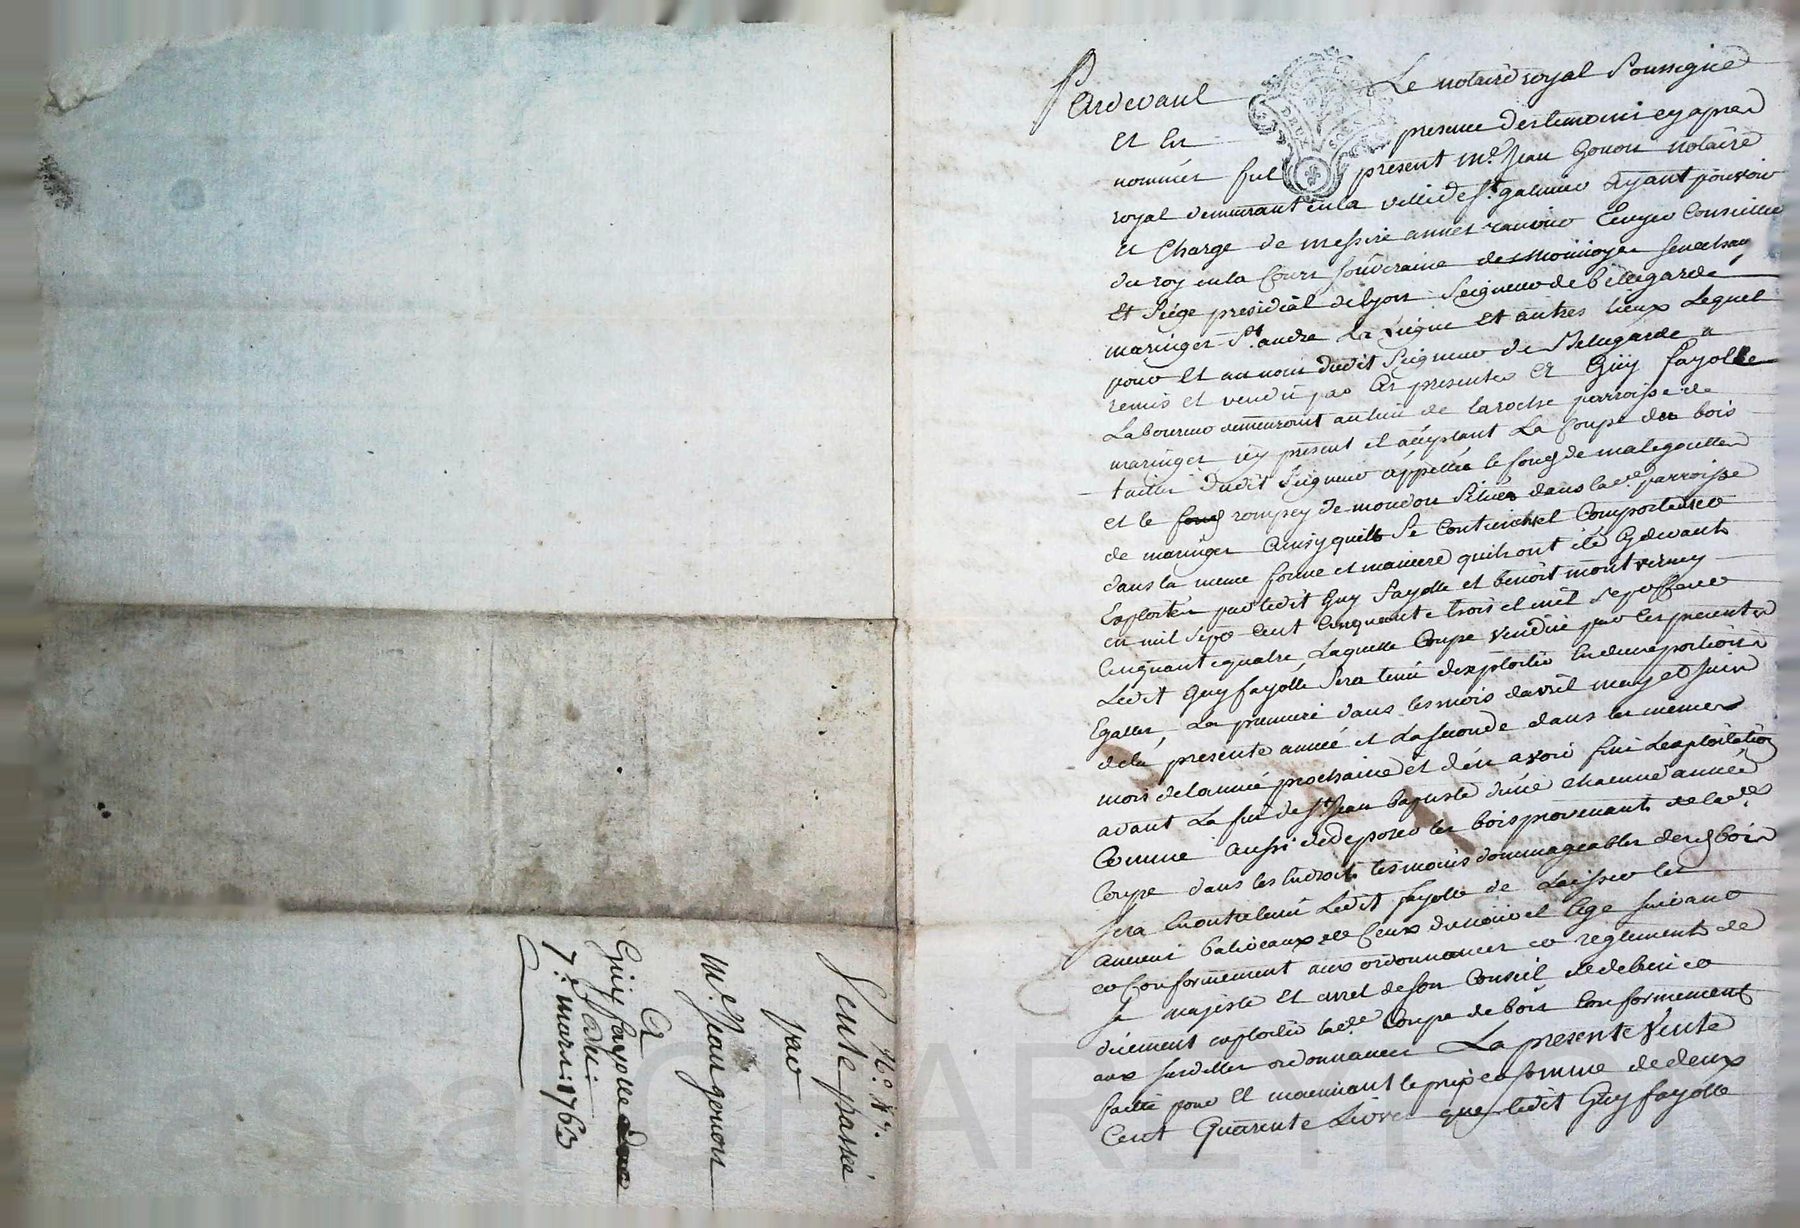 Pardevant Le notaire royal Soussigné
Et En presence des temoins cy apres
nommés fut present Me. Jean Gonon notaire
royal demeurant en la ville de St. galmier Ayant pouvoir
et Charge de messire annet ranvier Ecuyer Conseiller
du roy en la Cour souveraine des monnoyes senechaussée
Et Siége presidial de lyon Seigneur de bellegarde
maringes St. andre La Vigne Et autres lieux Lequel
pour Et au nom dudit Seigneur de Bellegarde a
remis et vendû par les presentes a Guÿ fayolle
Laboureur demeurant au lieu de laroche parroisse de
maringes icy présent et acceptant La Coupe des bois
taillis dudit Seigneur appellés le fond de malegoutte
et le fond rompey de mondon Situés dans lade. parroisse
de maringes Ainsy quils Se Contiennent Comportent et
dans la meme forme et maniere quils ont été Cydevant
Exploités par ledit Guy fayolle et benoît montverney
en mil Sept Cent Cinquante trois et mil Sept Cent
Cinquante quatre, Laquelle Coupe Vendüe par les presentes
Ledit Guy fayolle Sera tenu dexploiter En deux portions
Egalles, La premiere dans les mois davril may et Juin
de la presente année et La seconde dans les mêmes
mois de lannée prochaine et d'en avoir fini Lexploitation
avant La fin de St. Jean baptiste de chacune année
Comme aussi de deposer les bois provenants de lade.
Coupe dans les Endroits les moins dommageables desd. bois
Sera En outre tenu Ledit fayolle de Laisser les
anciens baliveaux et Ceux du nouvel âge suivant
et Conformement aux ordonnances et reglements de
Sa majesté Et arrest de Son Conseil et
exploiter lade. Coupe de bois Conformement
aux susdittes ordonnances La presente Vente
faitte pour Et moennant le prix et somme de deux
Cent Quarante Livres que ledit Guy fayolle
N°. 47.
Vente passée
par
Me. Jean gonon
A
Guy fayolle
Du
7e. mars 1763
Pascal CHAREYRON